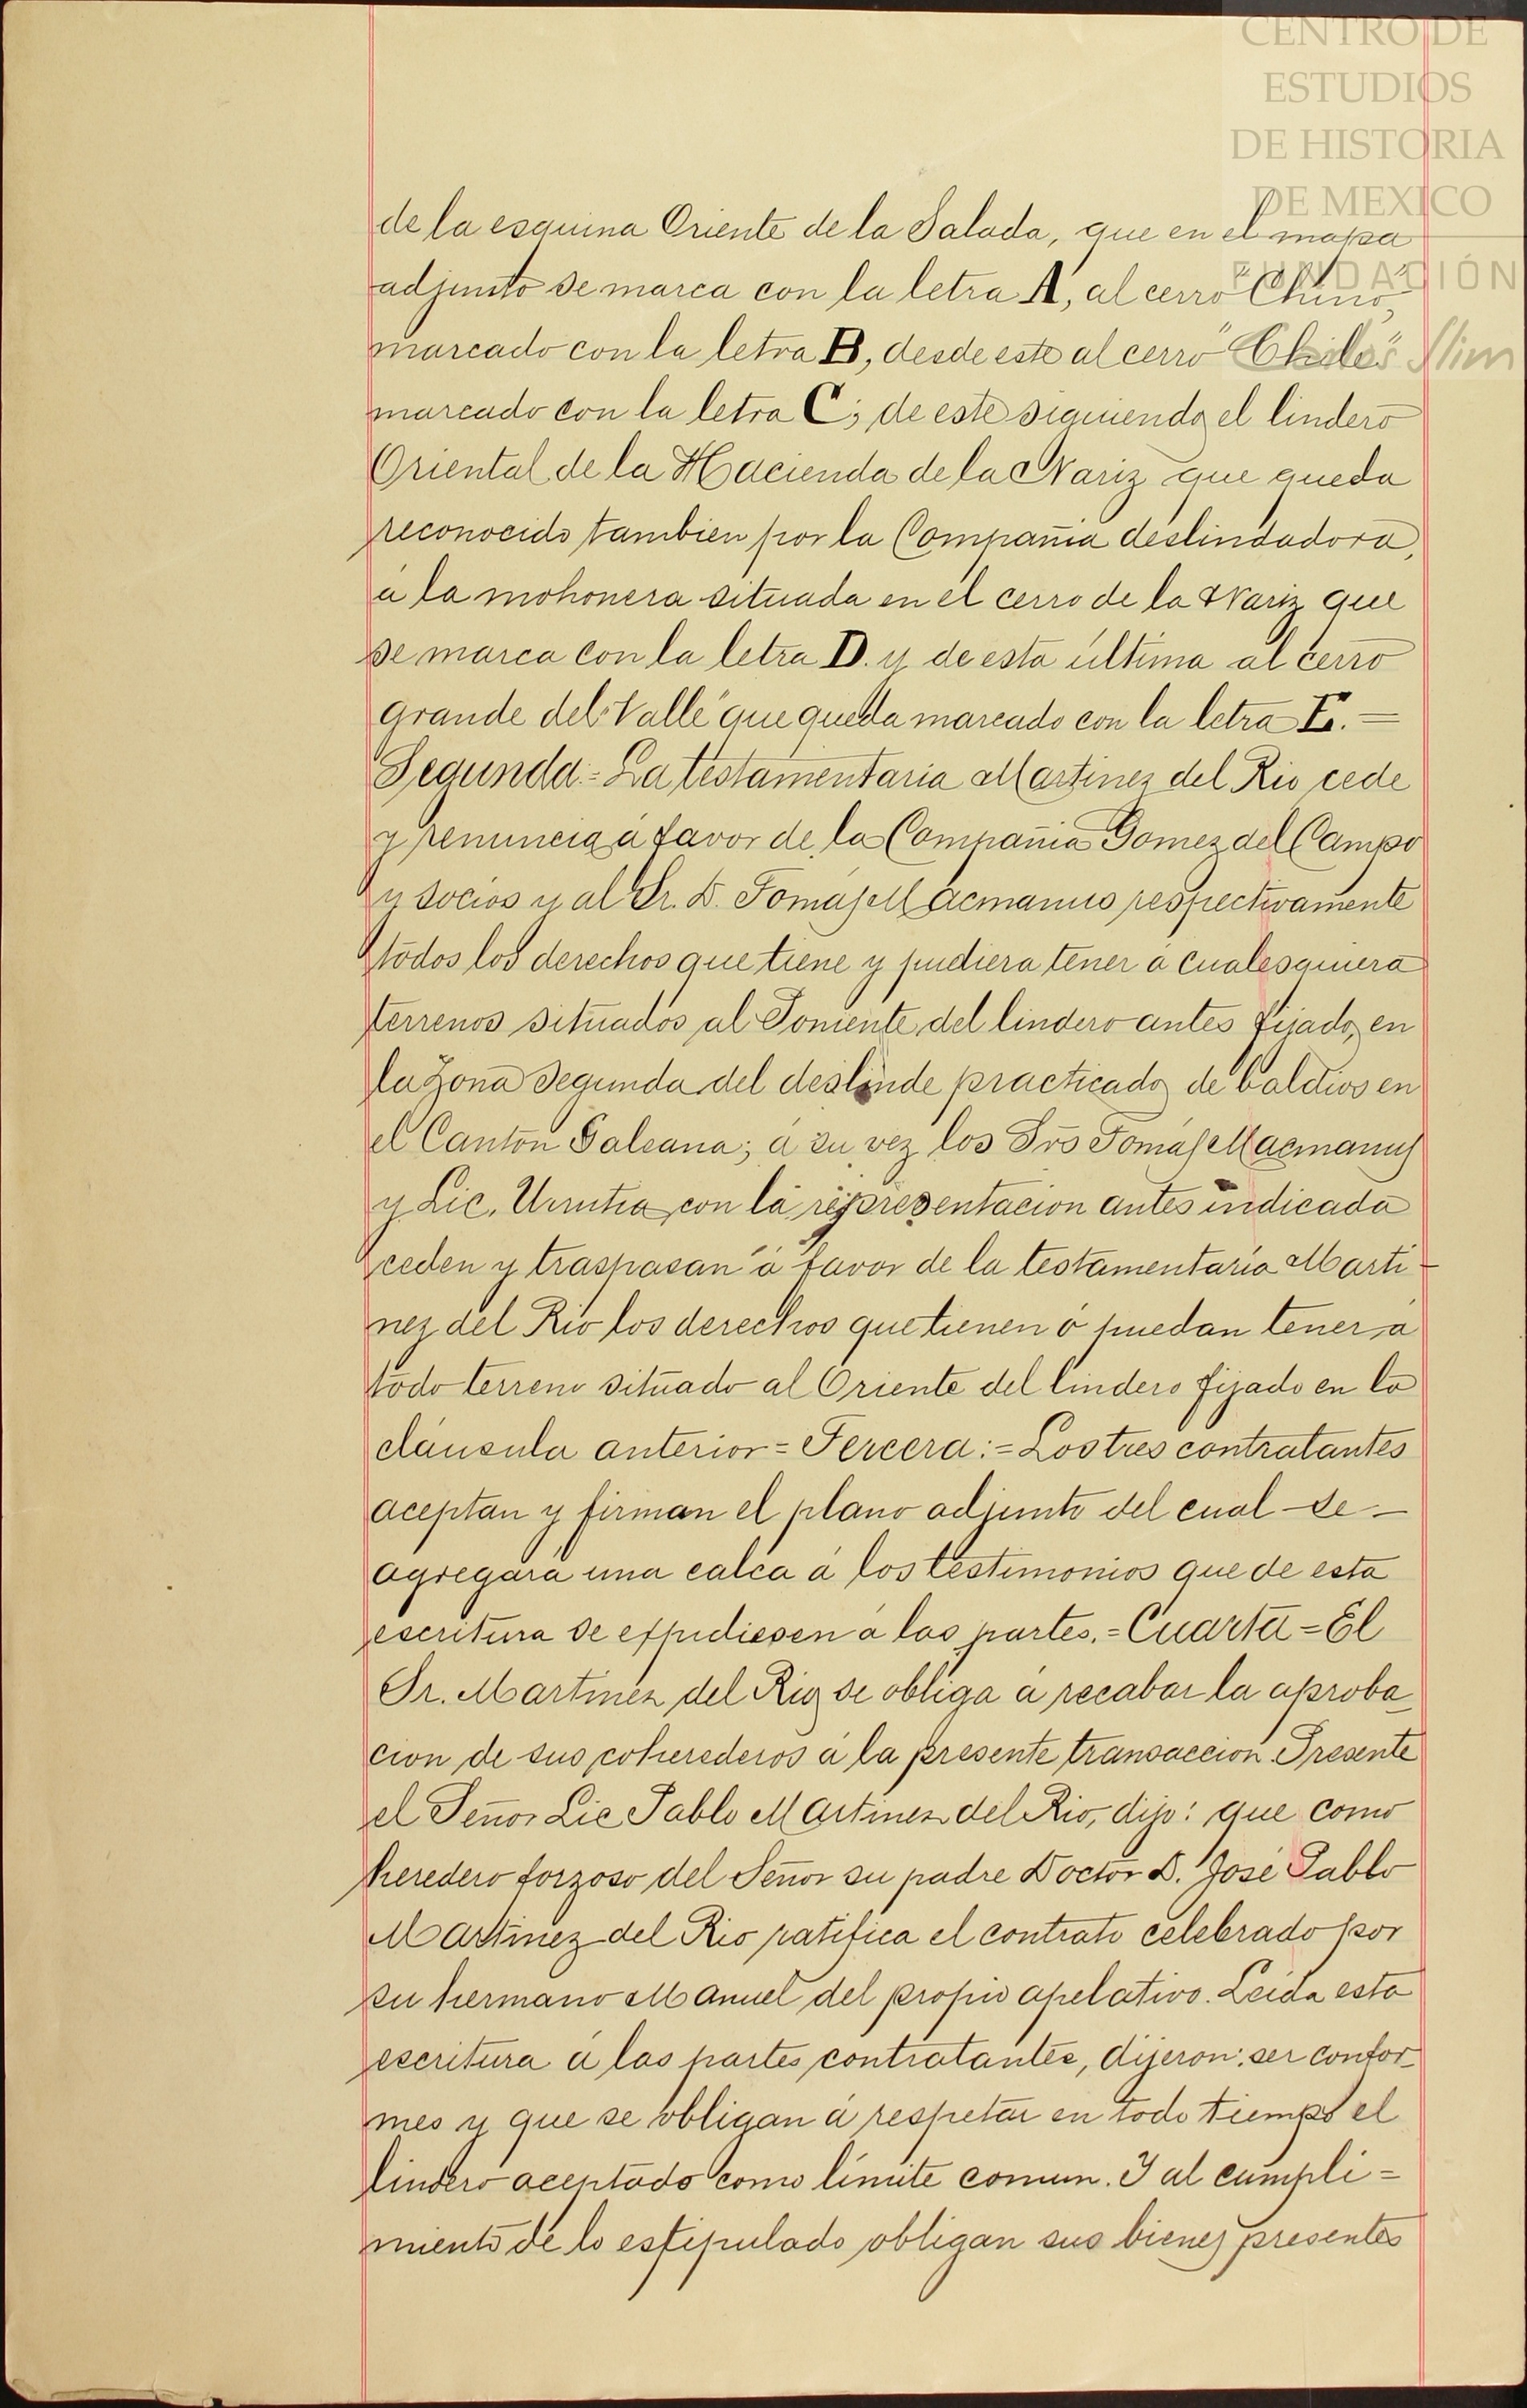 CENTRO DE
ESTUDIOS
DE HISTORIA
DE MEXICO
FUNDACIÓN
Carlos Slim
de la esquina Oriente de la Salada, que en el mapa
adjunto se marca con la letra A, al cerro "Chino",
marcado con la letra B, desde este al cerro "Chile"
marcado con la letra C; de este siguiendo el lindero
Oriental de la Hacienda de la Nariz que queda
reconocido tambien por la Compañia deslindadora,
á la mohonera situada en el cerro de la Nariz que
se marca con la letra D. y de esta última al cerro
grande del "Valle" que queda marcado con la letra E. =
Segunda:= La testamentaria Martinez del Rio cede
y renuncia á favor de la Compañia Gomez del Campo
y socios y al Sr. D. Tomás Macmanus respectivamente
todos los derechos que tiene y pudiera tener á cualesquiera
terrenos situados al Poniente del lindero antes fijado, en
la Zona Segunda del deslinde practicado de baldios en
el Canton Galeana; á su vez los Srs Tomás Macmanus
y Lic. Urrutia con la representacion antes indicada
ceden y traspasan á favor de la testamentaría Marti-
nez del Rio los derechos que tienen ó puedan tener á
todo terreno situado al Oriente del lindero fijado en la
cláusula anterior = Tercera:= Los tres contratantes
aceptan y firman el plano adjunto del cual se -
agregará una calca á los testimonios que de esta
escritura se expidiesen á las partes. = Cuarta = El
Sr. Martinez del Rio se obliga á recabar la aproba-
cion de sus coherederos á la presente transaccion. Presente
el Señor Lic Pablo Martinez del Rio, dijo: que como
heredero forzoso del Señor su padre Doctor D. José Pablo
Martinez del Rio ratifica el contrato celebrado por
su hermano Manuel del propio apelativo. Leida esta
escritura á las partes contratantes, dijeron: ser confor-
mes y que se obligan á respetar en todo tiempo el
lindero aceptado como límite comun. Y al cumpli=
miento de lo estipulado obligan sus bienes presentes